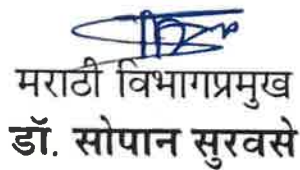 मराठी विभागप्रमुख
डॉ. सोपान सुरवसे